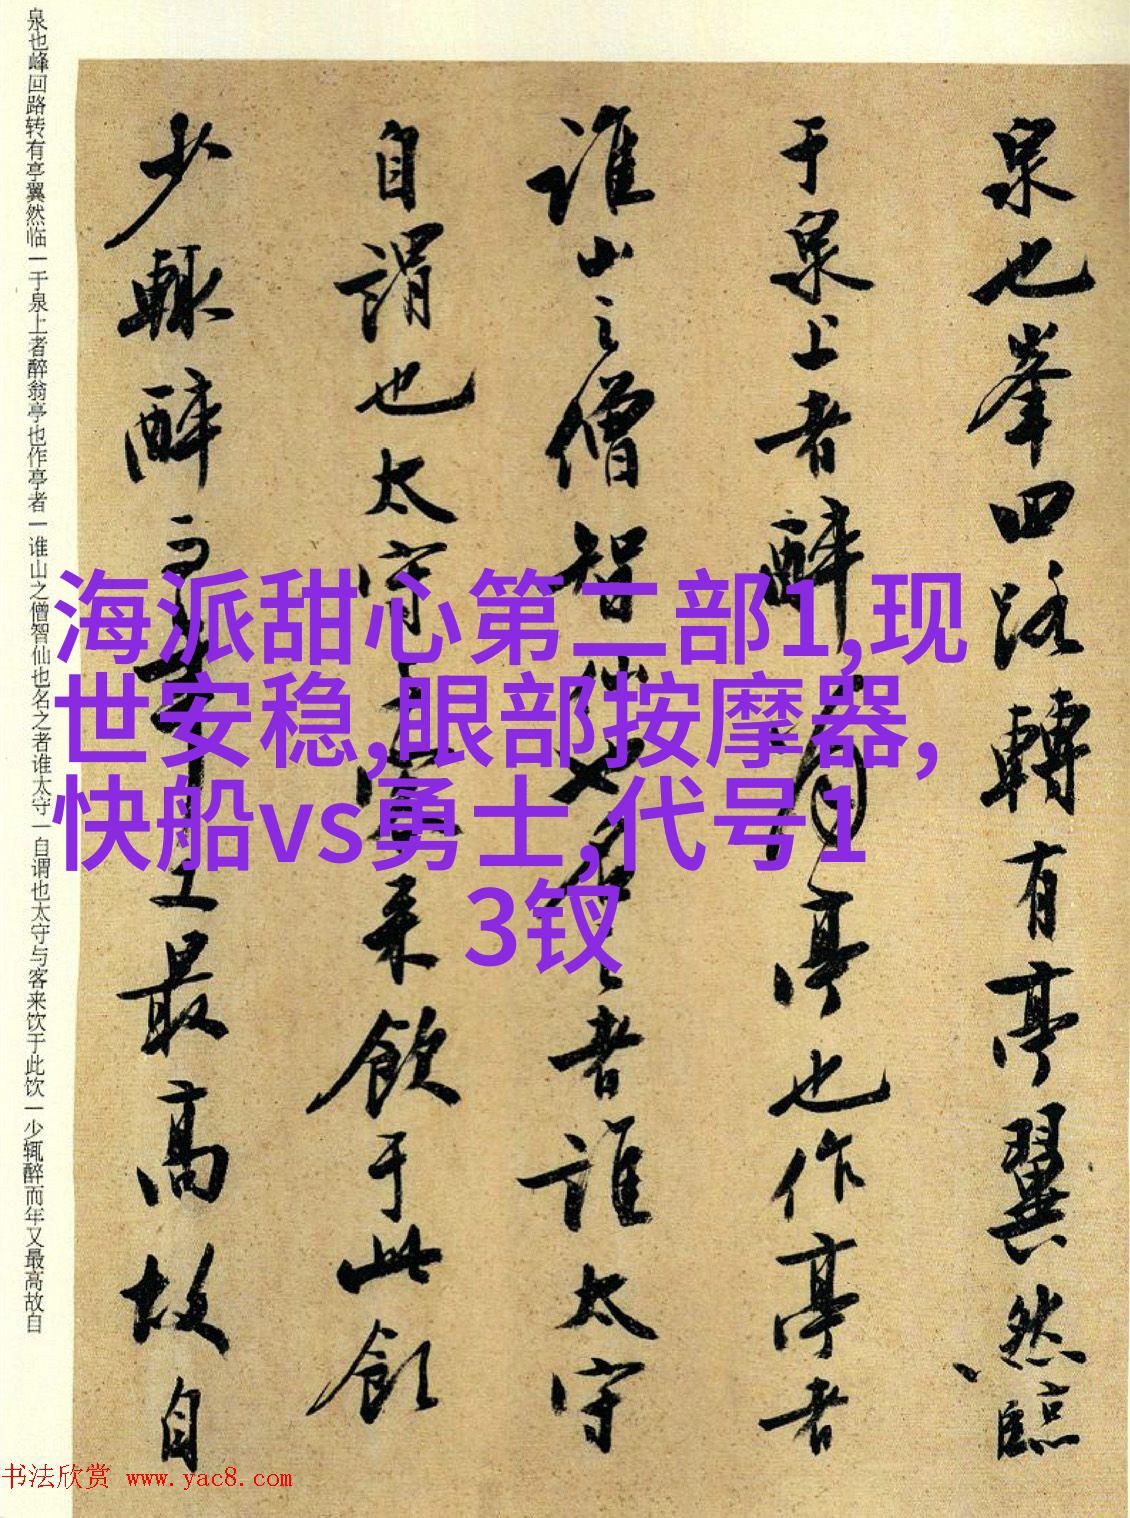 泉也峰回路转有亭翼然临一于泉上者醉翁亭也作亭者一谁山之僧智仙也名之者谁太守一自谓也太守与客来饮于此饮一少辄醉而年又最高故自
泉也峯回路轉有亭翼然臨
于泉上者醉翁亭也作亭者
誰山之僧智仙也名之者誰太守
自謂也太守与客来飲于此飲
少輒醉而年又最高故自
海派甜心第二部1,现
世安稳,眼部按摩器,
快船vs勇士,代号1
3钗
书法欣赏 www.yac8.com